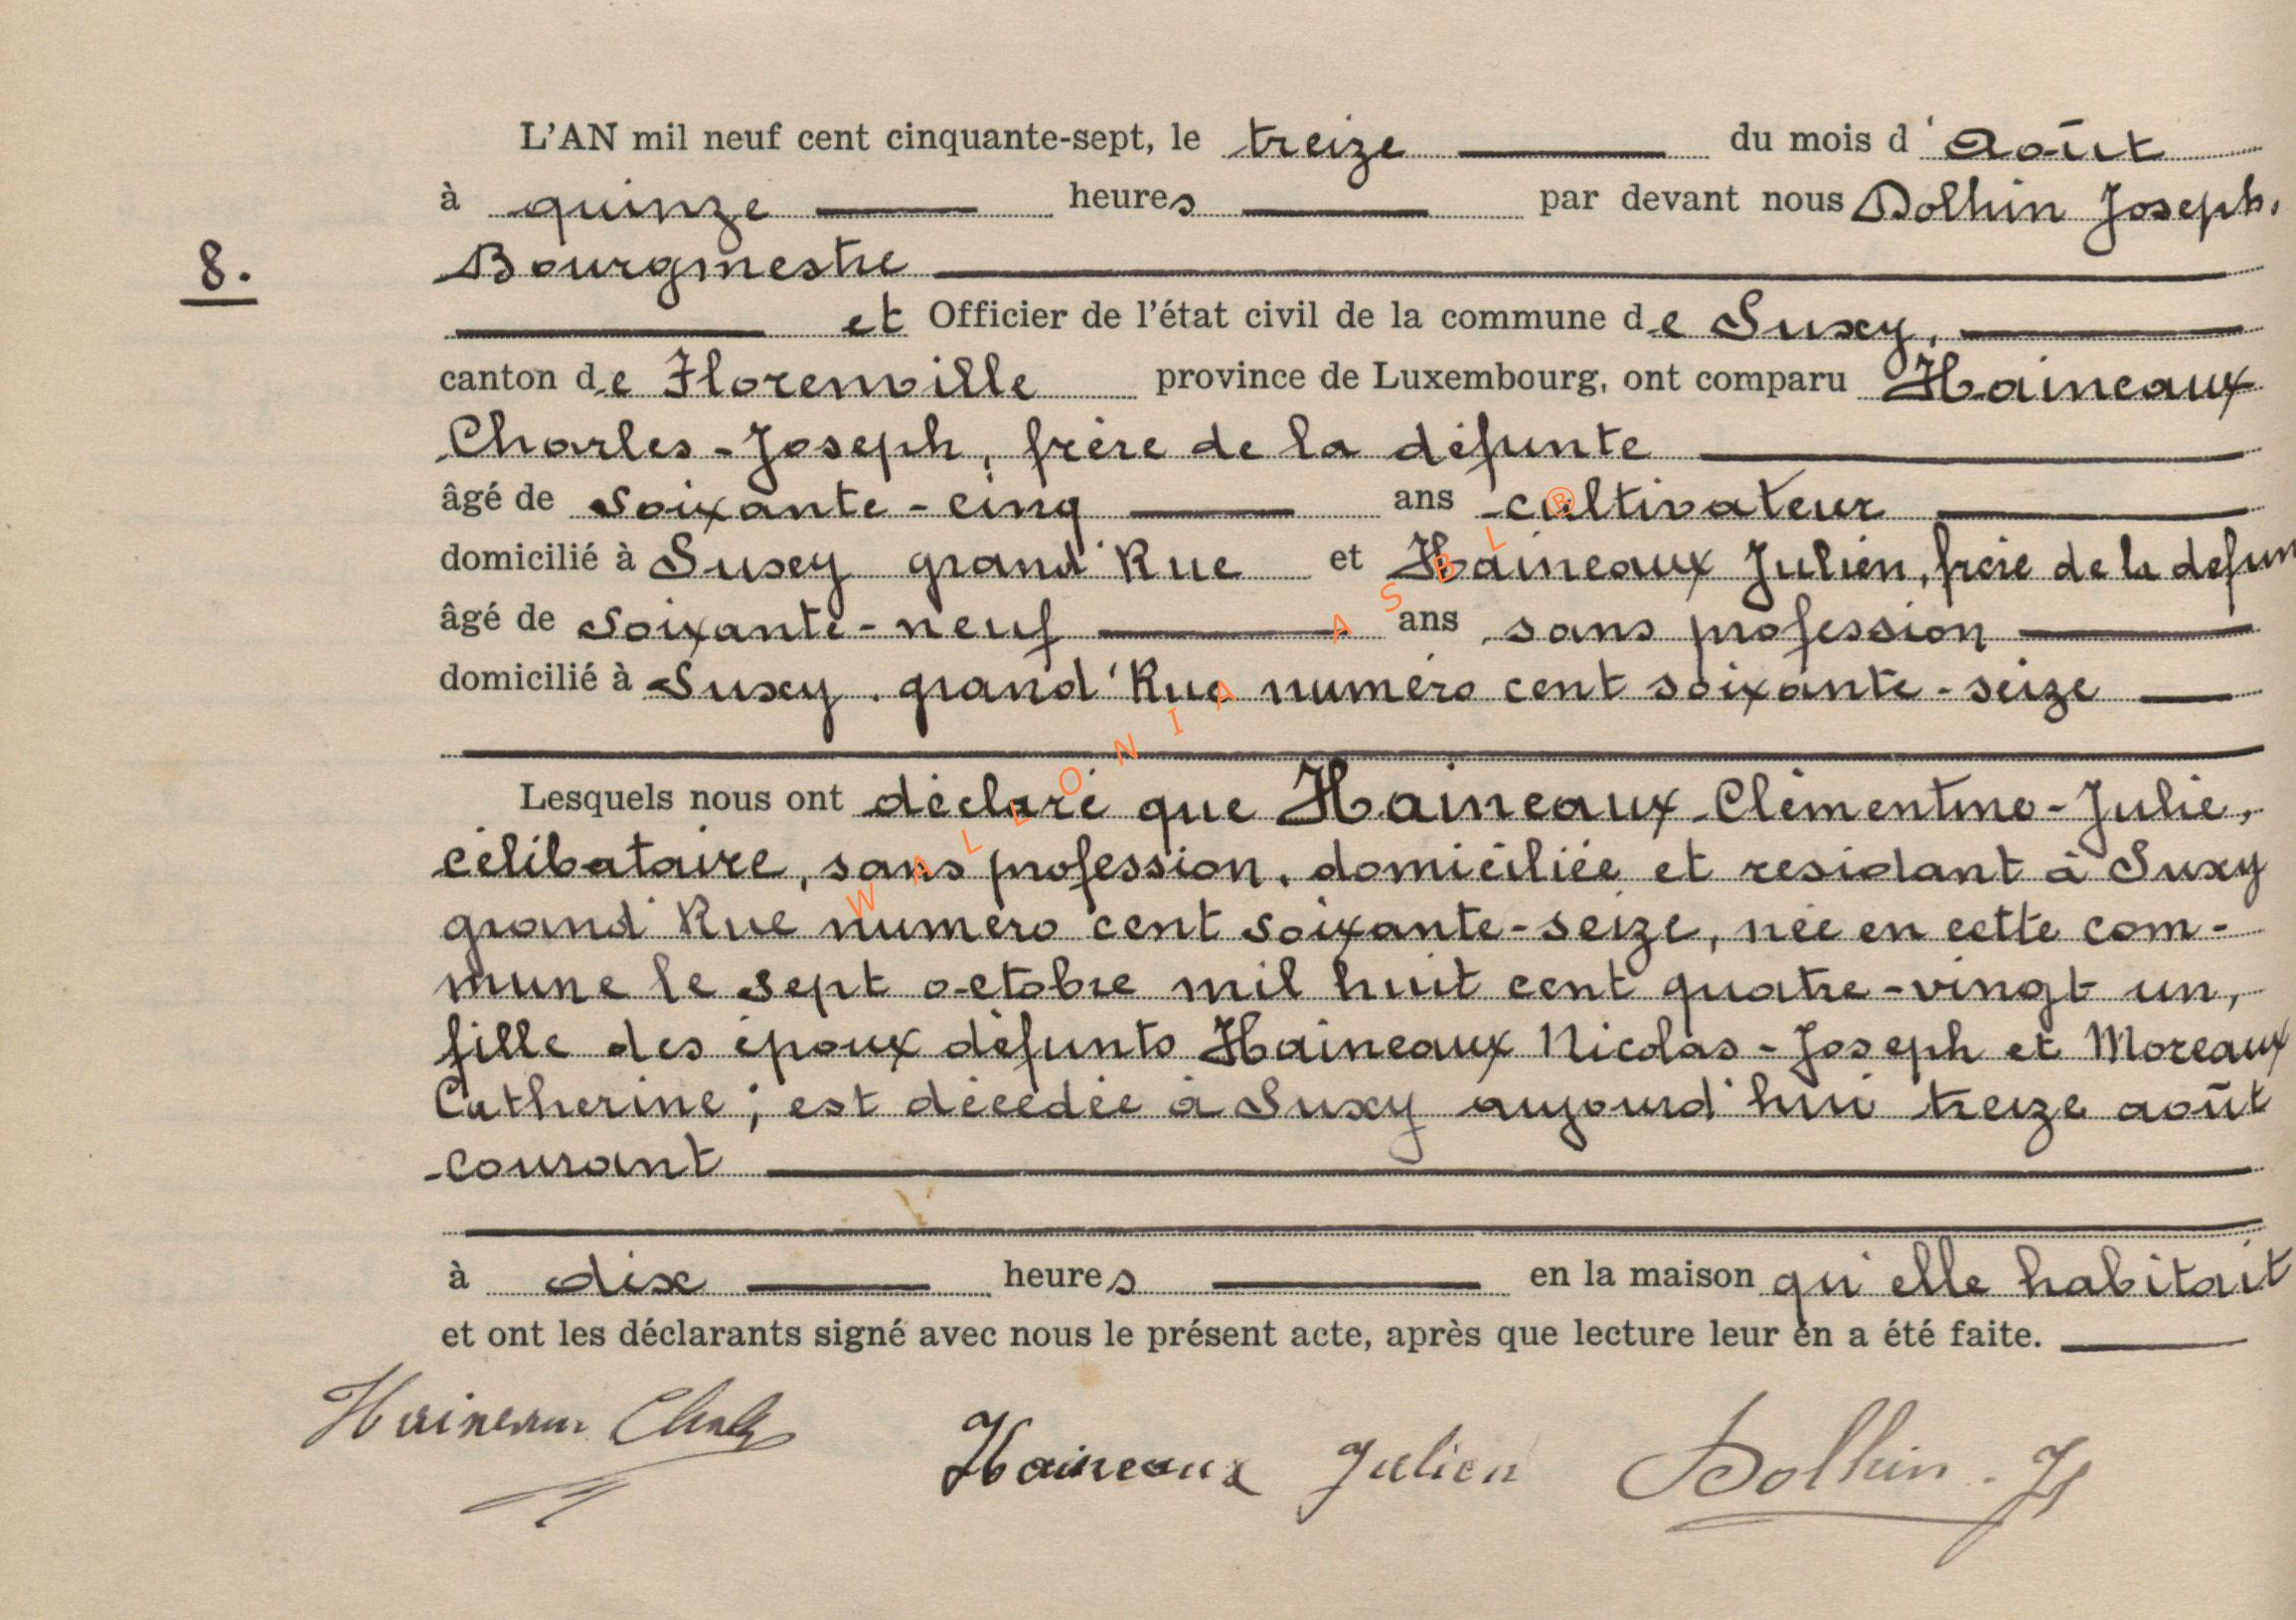 L'AN mil neuf cent cinquante-sept, le treize du mois d'Août
à quinze heures par devant nous Dolhin Joseph,
8.
Bourgmestre
et Officier de l'état civil de la commune de Suxy,
canton de Florenville province de Luxembourg, ont comparu Haineaux
Charles-Joseph, frère de la défunte
âgé de soixante-cinq ans cultivateur
domicilié à Suxy grand'Rue et Haineaux Julien, frère de la defun
âgé de soixante-neuf ans sans profession
domicilié à Suxy. grand'Rue numéro cent soixante-seize
Lesquels nous ont déclaré que Haineaux Clémentine-Julie,
célibataire, sans profession, domiciliée et residant à Suxy
grand'Rue numéro cent soixante-seize, née en cette com-
mune le sept octobre mil huit cent quatre-vingt un,
fille des époux défunts Haineaux Nicolas-Joseph et Moreaux
Catherine; est décédée à Suxy aujourd'hui treize août
courant
à dix heures en la maison qu'elle habitait
et ont les déclarants signé avec nous le présent acte, après que lecture leur en a été faite.
Haineaux Charles
Haineaux Julien
Dolhin. Js
WALLONIA ASBL ®